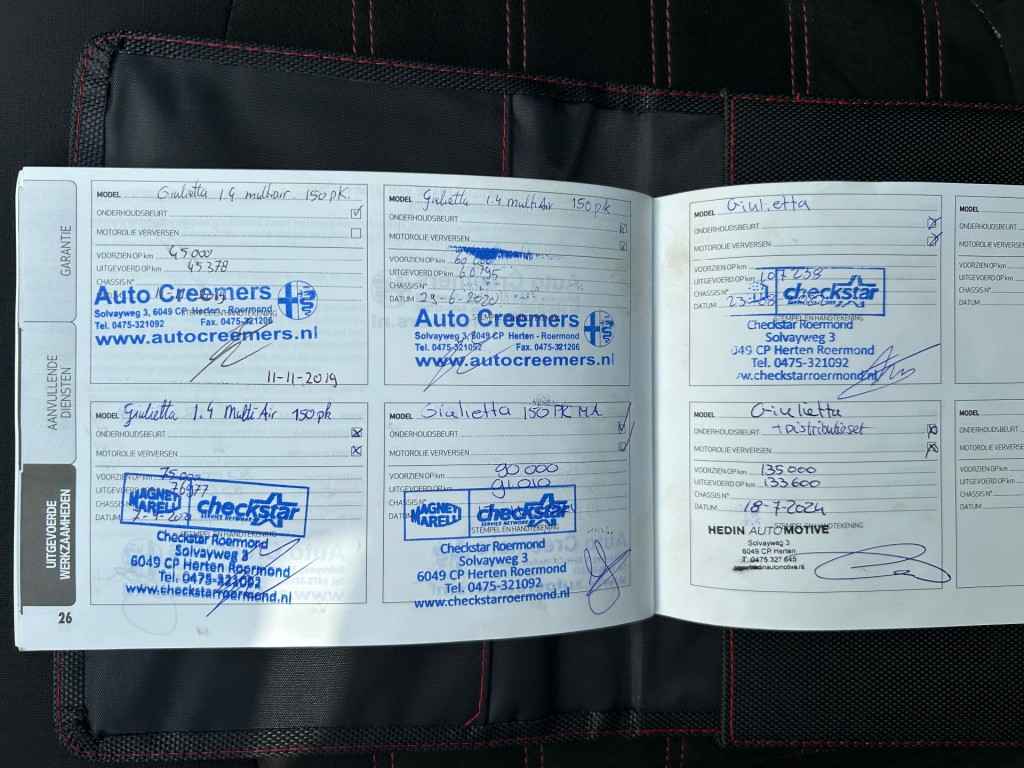 GARANTIE
AANVULLENDE
DIENSTEN
UITGEVOERDE
WERKZAAMHEDEN
26
MODEL Giulietta 1.4 multiair 150 pk.
ONDERHOUDSBEURT
MOTOROLIE VERVERSEN
VOORZIEN OP km 45000
UITGEVOERD OP km 45378
CHASSIS N°
Auto Creemers
STEMPEL EN HANDTEKENING
Solvayweg 3, 6049 CP Herten - Roermond
Tel. 0475-321092 Fax. 0475-321206
www.autocreemers.nl
11-11-2019
MODEL Giulietta 1.4 multiAir 150 pk
ONDERHOUDSBEURT
MOTOROLIE VERVERSEN
VOORZIEN OP km 60 000
UITGEVOERD OP km 60.795
CHASSIS N°
DATUM 29-6-2020
Auto Creemers
STEMPEL EN HANDTEKENING
Solvayweg 3, 6049 CP Herten - Roermond
Tel. 0475-321092 Fax. 0475-321206
www.autocreemers.nl
MODEL Giulietta 1.4 MultiAir 150pk
ONDERHOUDSBEURT
MOTOROLIE VERVERSEN
VOORZIEN OP km 75000
UITGEVOERD OP km 76977
CHASSIS N°
DATUM
MAGNETI
MARELLI
checkstar
SERVICE NETWORK
Checkstar Roermond
Solvayweg 3
6049 CP Herten Roermond
Tel. 0475-321092
www.checkstarroermond.nl
MODEL Giulietta 150 PK MA
ONDERHOUDSBEURT
MOTOROLIE VERVERSEN
VOORZIEN OP km 90 000
UITGEVOERD OP km 91010
CHASSIS N°
DATUM
MAGNETI
MARELLI
checkstar
SERVICE NETWORK
STEMPEL EN HANDTEKENING
Checkstar Roermond
Solvayweg 3
6049 CP Herten Roermond
Tel. 0475-321092
www.checkstarroermond.nl
MODEL Giulietta
ONDERHOUDSBEURT
MOTOROLIE VERVERSEN
VOORZIEN OP km
UITGEVOERD OP km 107238
CHASSIS N°
DATUM
checkstar
STEMPEL EN HANDTEKENING
Checkstar Roermond
Solvayweg 3
049 CP Herten Roermond
Tel. 0475-321092
w.checkstarroermond.nl
MODEL Giulietta
ONDERHOUDSBEURT + Distributieset
MOTOROLIE VERVERSEN
VOORZIEN OP km 135000
UITGEVOERD OP km 133600
CHASSIS N°
DATUM 18-7-2024
STEMPEL EN HANDTEKENING
HEDIN AUTOMOTIVE
Solvayweg 3
6049 CP Herten
T. 0475 321 645
hedinautomotive.nl
MODEL
ONDERHOUDS
MOTOROLIE V
VOORZIEN OP
UITGEVOERD
CHASSIS N°
DATUM
MODEL
ONDERHOUDS
MOTOROLIE V
VOORZIEN OP k
UITGEVOERD
CHASSIS N°
DATUM